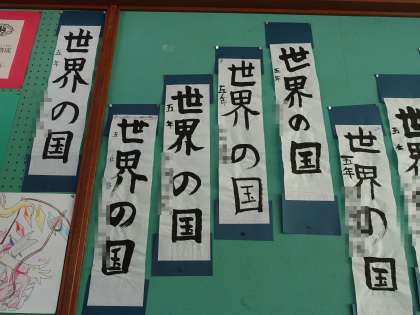 世界の国
五年
世界の国
五年
世界の国
五年
世界の国
五年
世界の国
五年
世界の国
五年
世界